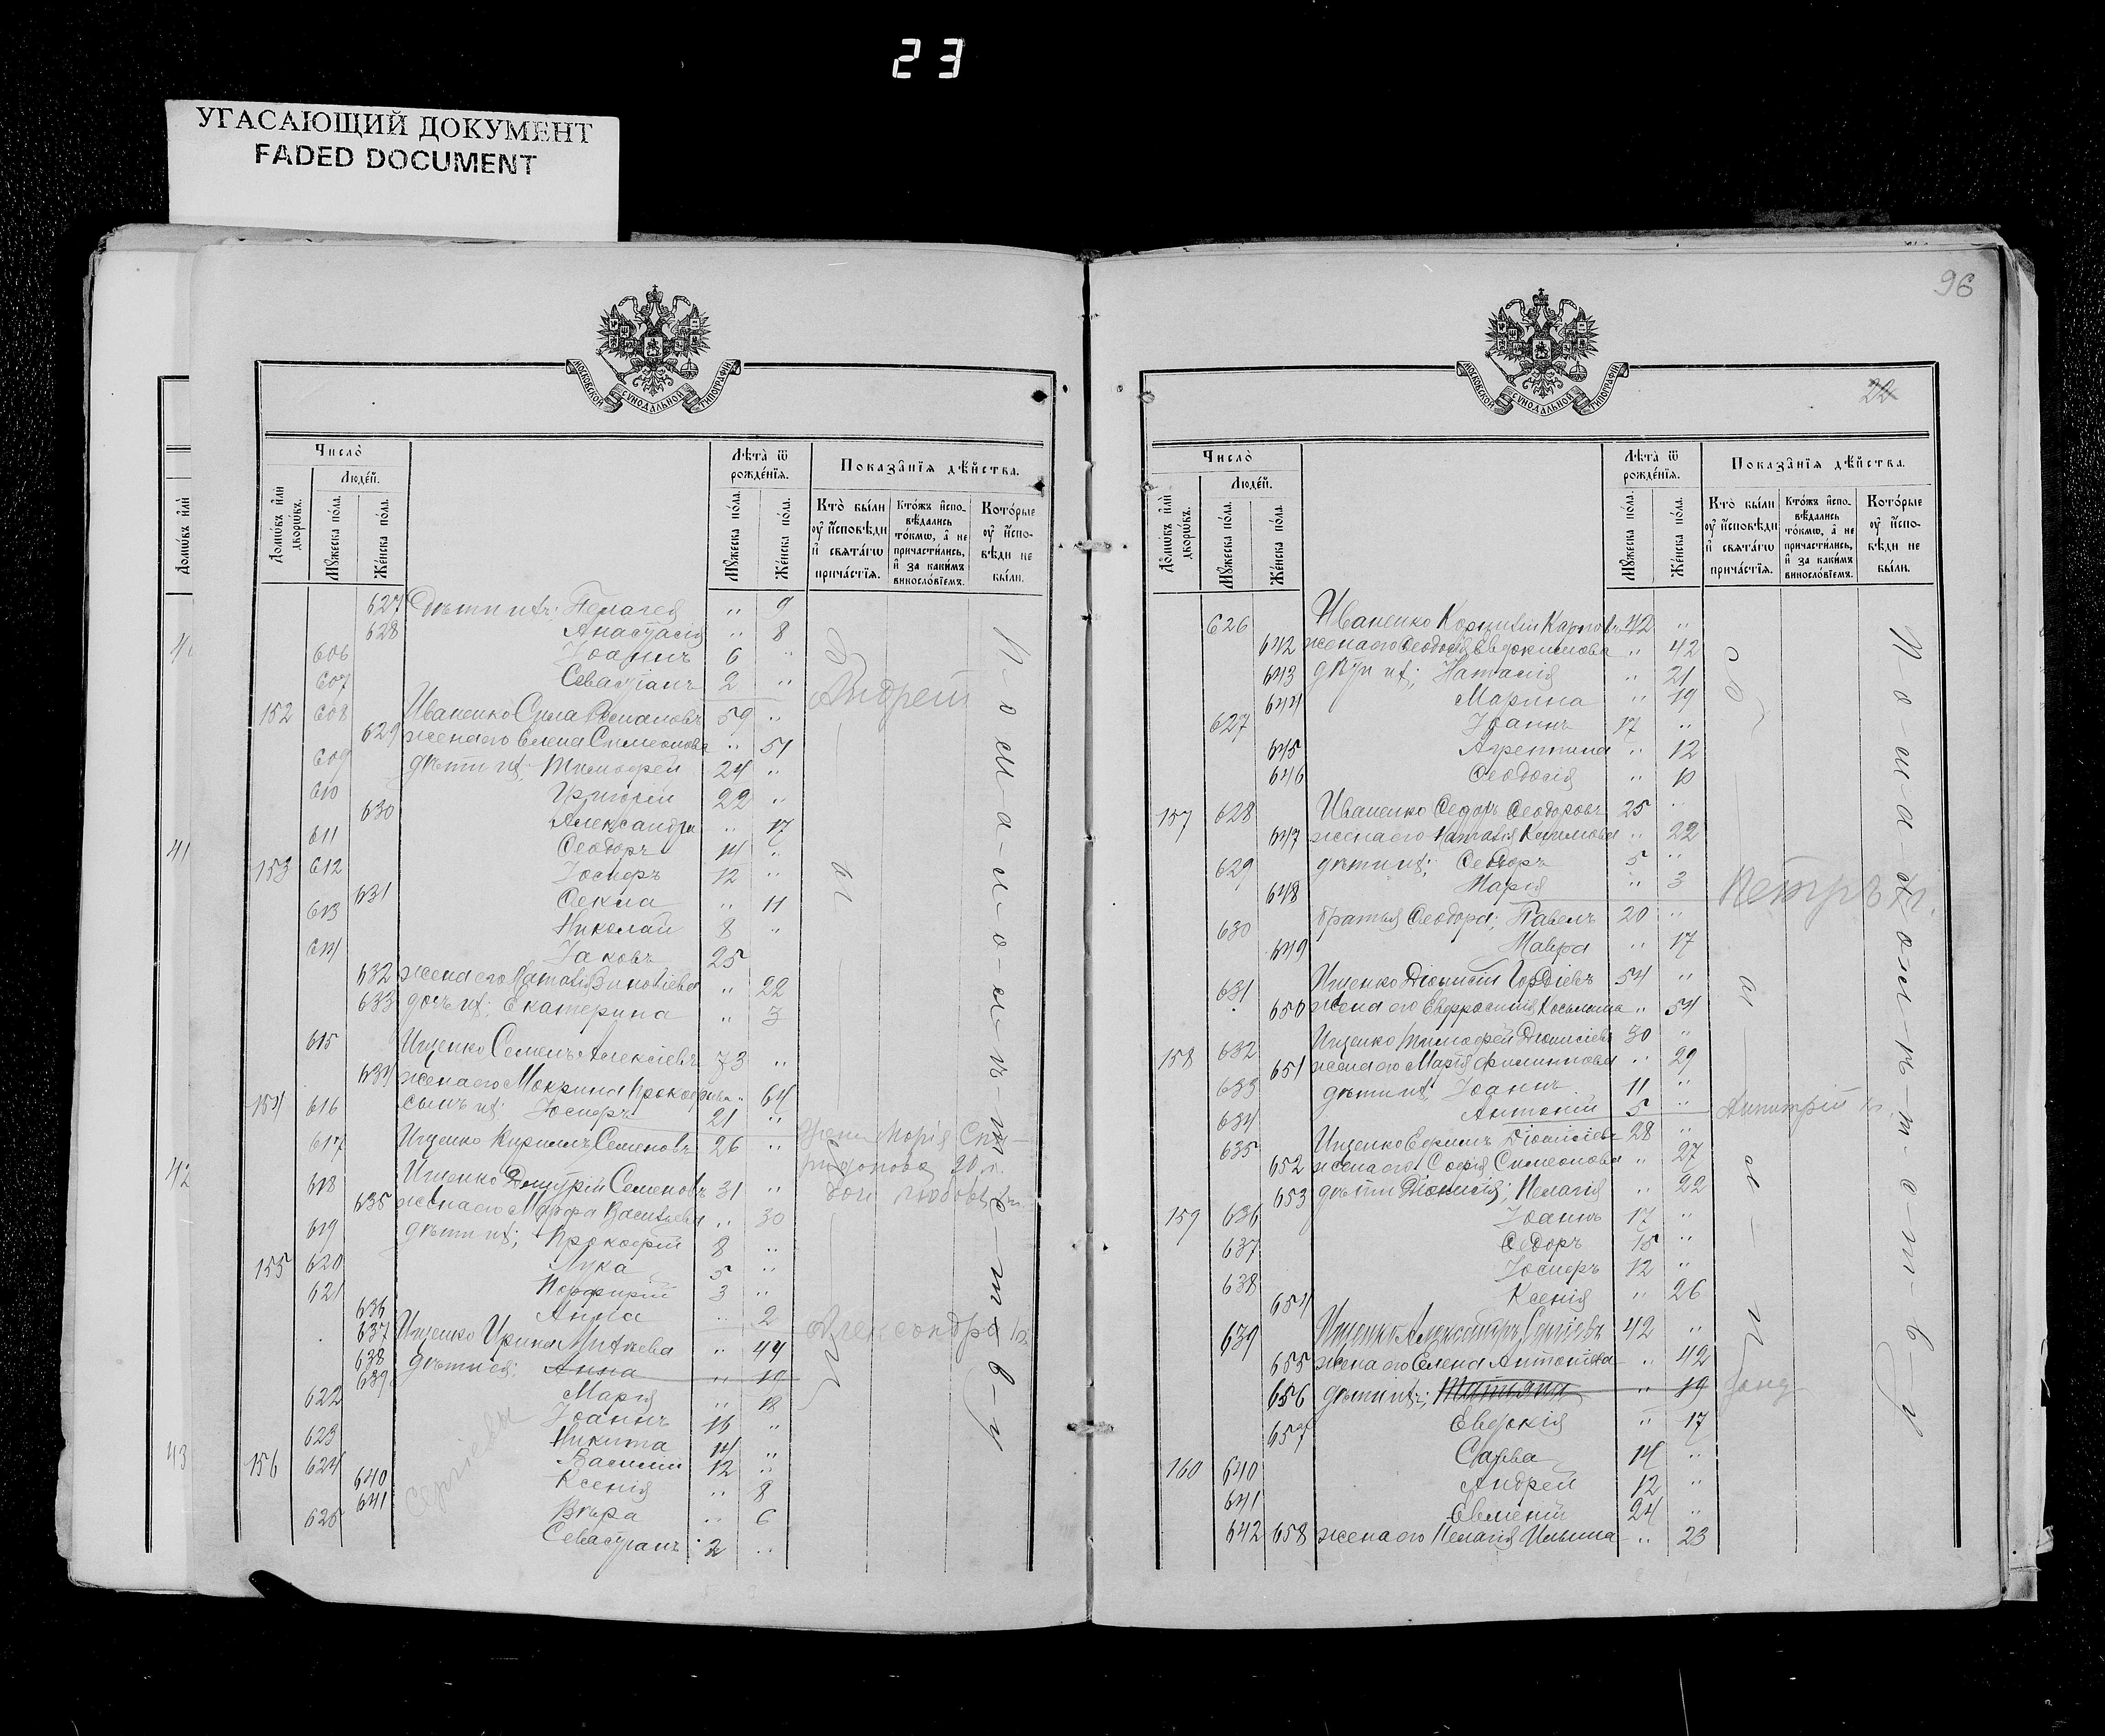 23
УГАСАЮЩИЙ ДОКУМЕНТ
FADED DOCUMENT
МОСКОВСКОЙ СѴНОДАЛЬНОЙ ТИПОГРАФІИ
Число̀
Людей.
Домѡвъ и҆лѝ дворѡвъ.
Мꙋ́жеска по́ла.
Же́нска по́ла.
Лѣ́та ѿ рожде́нїѧ.
Мꙋ́жеска по́ла.
Же́нска по́ла.
Показа̑нїѧ дѣ́йства.
Кто̀ бы́ли оу҆ и҆́сповѣди и҆ свѧта́гѡ прича́стїѧ.
Кто́жъ и҆спо-вѣ́дались то́кмѡ, а҆ не причасти́лись, и҆ за каки́мъ винослові́емъ.
Кото́рые оу҆ и҆́спо-вѣди не бы́ли.
627 Дѣти ихъ: Пелагея " 9
628 Анастасія " 8
606 Іоаннъ 6 "
607 Севастіанъ 2 "
Андрей
152 608 Иваненко Сила Романовъ 59 "
629 жена его Елена Симеонова " 51
609 дѣти ихъ; Тимофей 24 "
610 Григорій 22 "
630 Александра " 17
611 Ѳеодоръ 14 "
153 612 Іосифъ 12 "
631 Ѳекла " 11
613 Николай 8 "
614 Іаковъ 25
632 жена его Наталія Зиновіева " 22
633 дочь ихъ; Екатерина " 3
615 Ищенко Семенъ Алексіевъ 73 "
634 жена его Мокрина Прокофіева " 64
154 616 сынъ ихъ Іосифъ 21 "
617 Ищенко Кириллъ Семеновъ 26 "
жена Марія Спи-
ридонова 20 л.
618 Ищенко Димитрій Семеновъ 31 "
635 жена его Марфа Васильева " 30
619 дѣти ихъ; Прокофій 8 "
155 620 Лука 5 "
621 Порфирій 3 "
636 Анна " 2
Александра
637 Ищенко Ирина " 44
638 дѣти ея: Анна " 19
639 Марія " 18
622 Іоаннъ 16 "
623 Никита 14 "
156 624 Василій 12 "
640 Ксенія " 8
641 Вѣра " 6
625 Севастіанъ 2 "
Сергіевы
96
22
МОСКОВСКОЙ СѴНОДАЛЬНОЙ ТИПОГРАФІИ
Число̀
Людей.
Домѡвъ и҆лѝ дворѡвъ.
Мꙋ́жеска по́ла.
Же́нска по́ла.
Лѣ́та ѿ рожде́нїѧ.
Мꙋ́жеска по́ла.
Же́нска по́ла.
Показа̑нїѧ дѣ́йства.
Кто̀ бы́ли оу҆ и҆́сповѣди и҆ свѧта́гѡ прича́стїѧ.
Кто́жъ и҆спо-вѣ́дались то́кмѡ, а҆ не причасти́лись, и҆ за каки́мъ винослові́емъ.
Кото́рые оу҆ и҆́спо-вѣди не бы́ли.
626 Иваненко Корнилій Карповъ 42 "
642 жена его Ѳеодосія Евдокимова " 42
643 дѣти ихъ; Наталія " 21
644 Марина " 19
627 Іоаннъ 17 "
645 Агрепина " 12
646 Ѳеодосія " 10
157 628 Иваненко Ѳедоръ Ѳеодоровъ 25 "
647 жена его Наталія " 22
629 дѣти ихъ; Ѳеодоръ 5 "
648 Марія " 3
Петръ
630 братья Ѳеодора; Павелъ 20 "
649 Мавра " 17
631 Ищенко Діонисій Гордіевъ 54 "
650 жена его Евфросинія Косьмина " 54
632 Ищенко Тимофей Діонисіевъ 30 "
158 651 жена его Марія Филиппова " 29
633 дѣти ихъ Іоаннъ 11 "
634 Антоній 5 "
Димитрій
635 Ищенко Ефимъ Діонисіевъ 28 "
652 жена его Софія Симеонова " 27
653 дѣти Діонисія; Пелагія " 22
159 636 Іоаннъ 17 "
637 Ѳедоръ 15 "
638 Іосифъ 12 "
654 Ксенія " 26
639 Ищенко Александръ Сергіевъ 42 "
655 жена его Елена Антонова " 42
656 дѣти ихъ; Татьяна " 19
657 Евдокія " 17
160 640 Савва 14 "
641 Андрей 12 "
Евмений 24 "
642 658 жена его Пелагія Ильина " 23